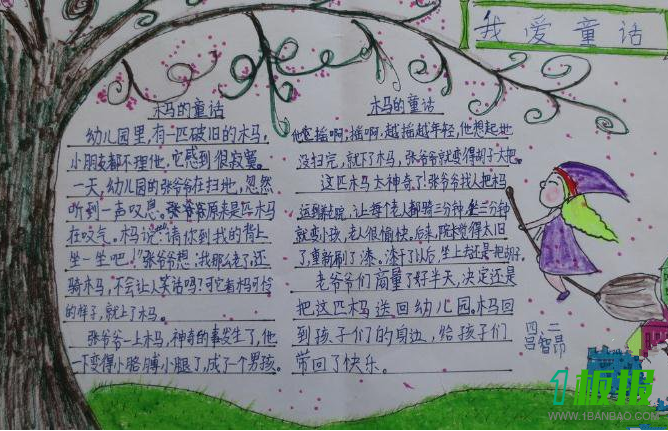 我爱童话
木马的童话
幼儿园里,有一匹破旧的木马,
小朋友都不理他,它感到很寂寞。
一天,幼儿园的张爷爷在扫地,忽然
听到一声叹息。张爷爷原来是匹木马
在叹气。木马说:“请你到我的背上
坐一坐吧!”张爷爷想:我那么老了,还
骑木马,不会让人笑话吗?可它看木马可怜
的样子,就上了木马。
张爷爷一上木马,神奇的事发生了,他
一下变得小胳膊小腿了,成了一个男孩。
木马的童话
他摇啊,摇啊,越摇越年轻,他想起地
没扫完,就下了木马,张爷爷就变得胡子大把。
这匹木马太神奇了!张爷爷找人把木马
运到养老院,让每个老人都骑三分钟,坐三分钟
就变小孩,老人很愉快。后来,院长觉得太旧
了,重新刷了漆。漆干了以后,坐上去还是把胡子。
老爷爷们商量了好半天,决定还是
把这匹木马送回幼儿园。木马回
到孩子们的身边,给孩子们
带回了快乐。
四.二
吕智昂
1板报
WWW.1BANBAO.COM